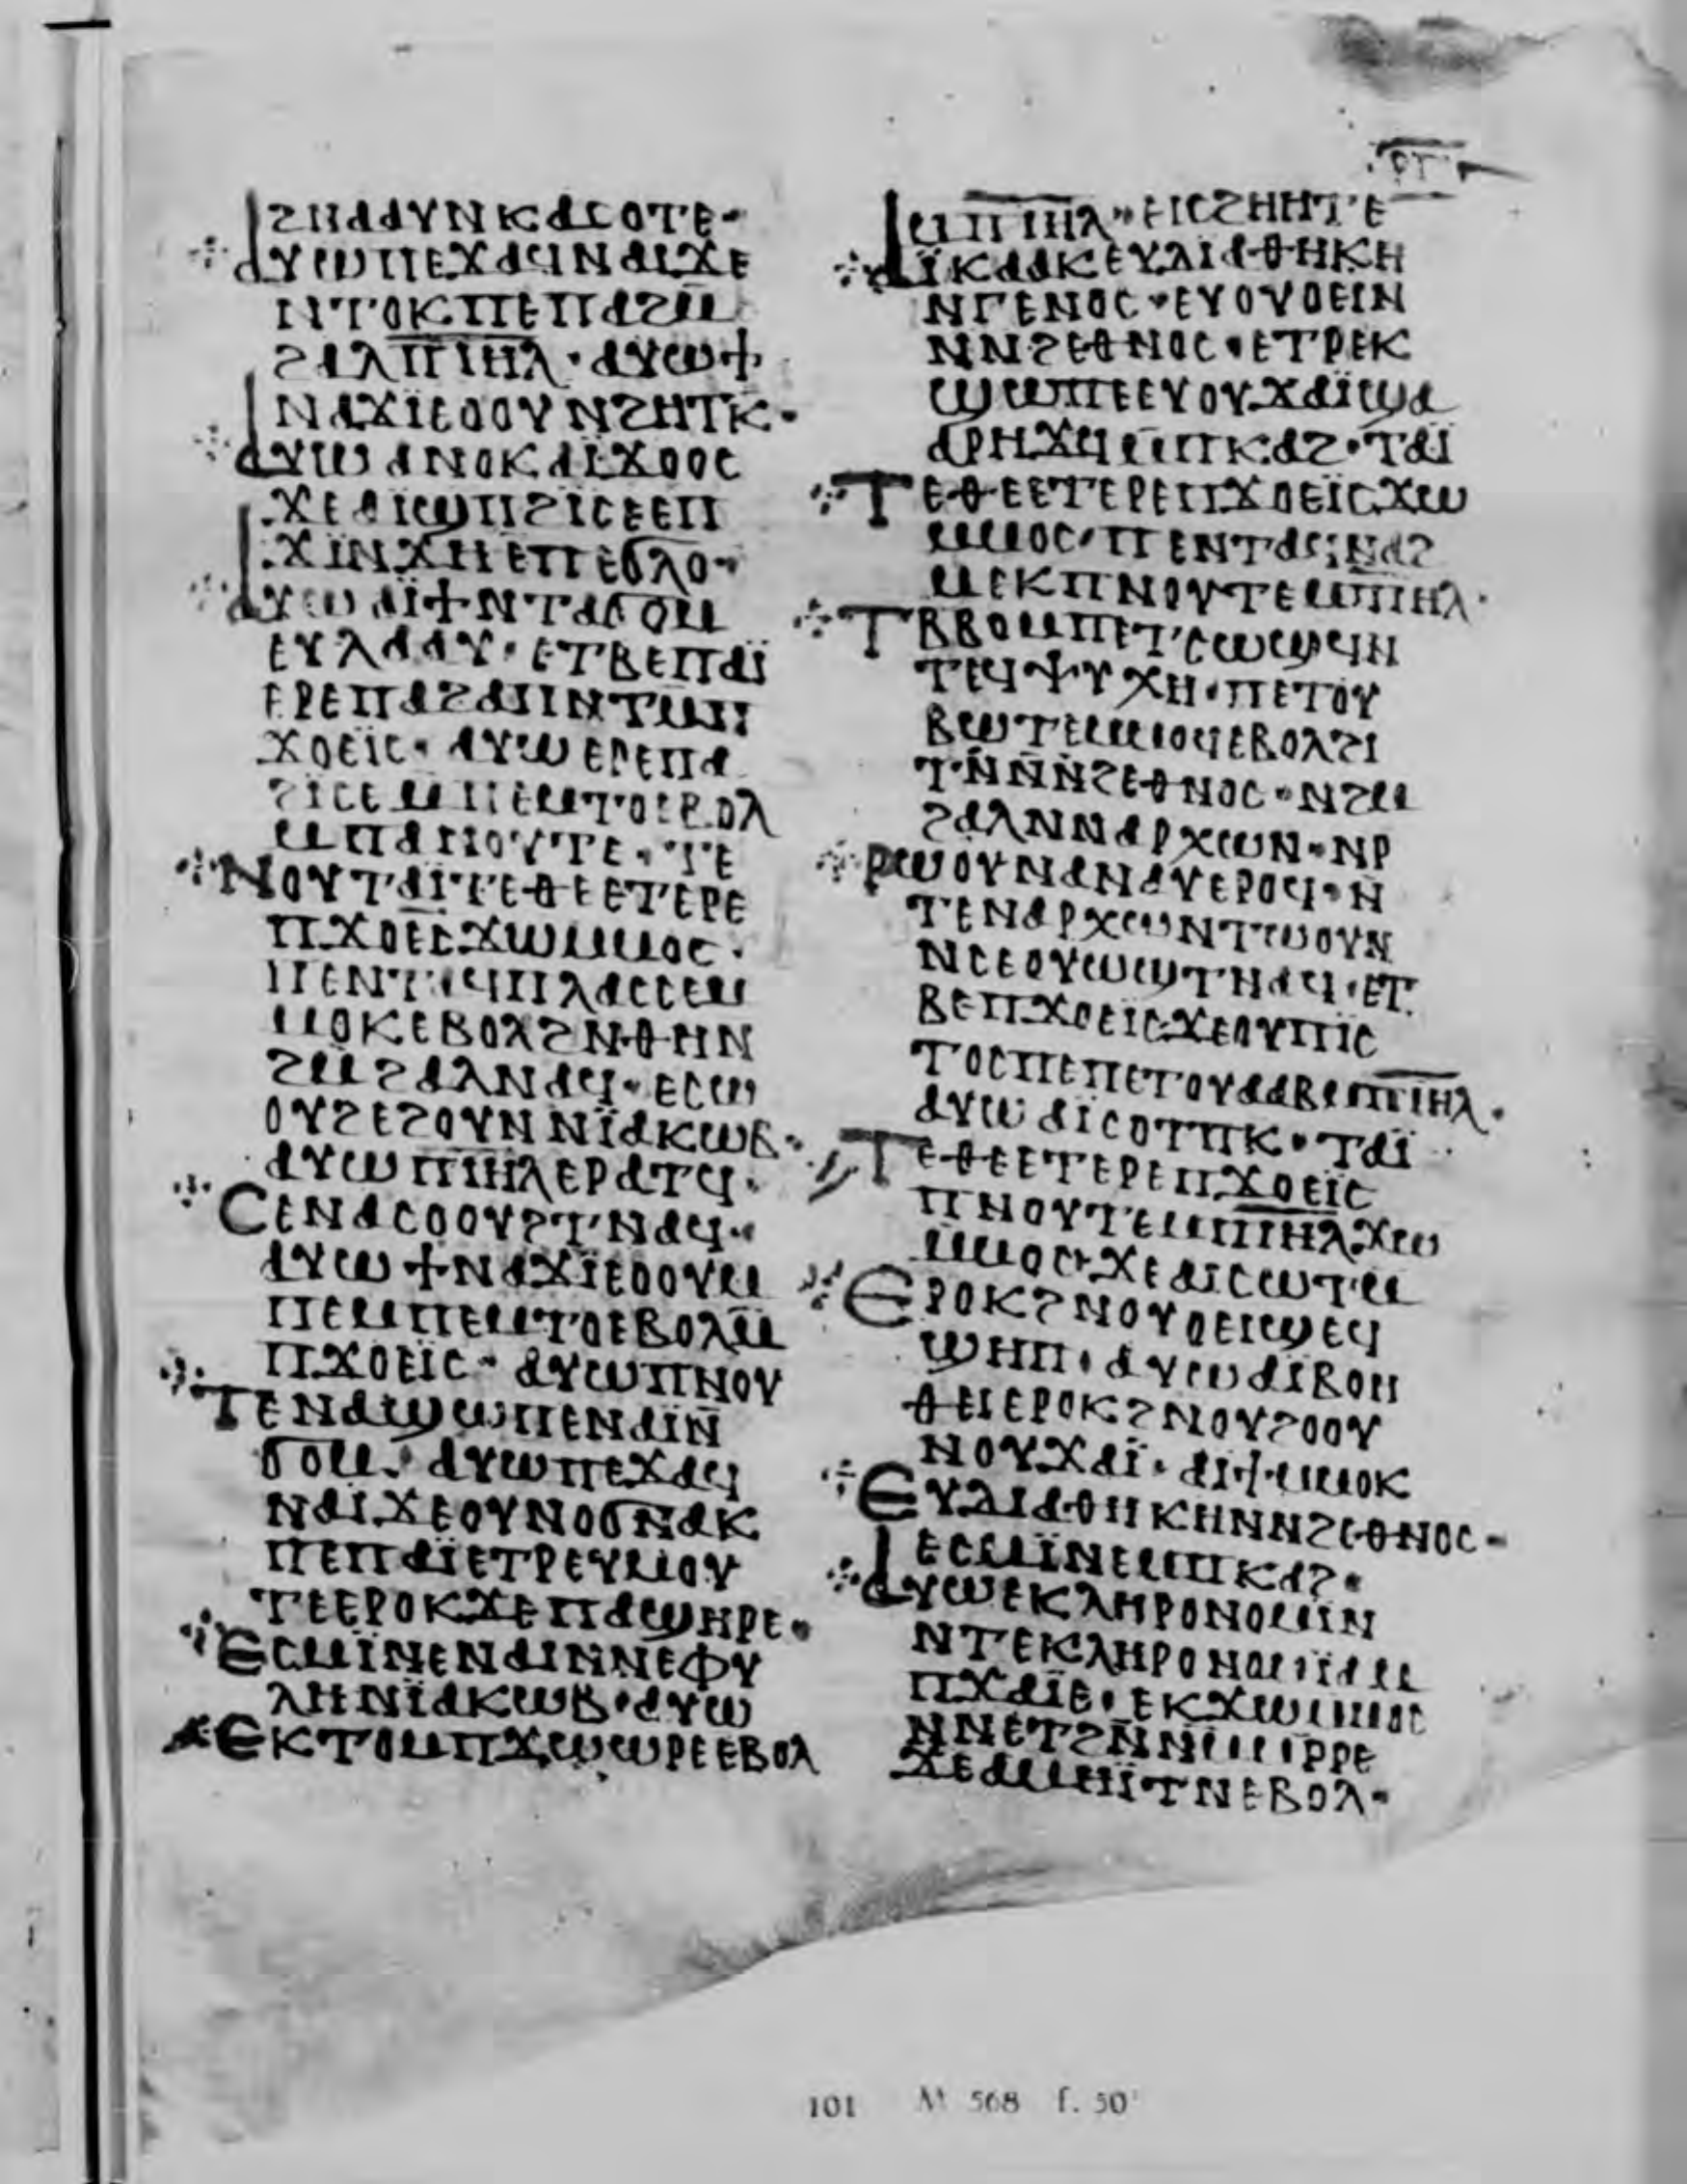 ⲣⲅ
ϩⲛⲁⲁⲩⲛⲕⲁⲥⲟⲧⲉ·
ⲁⲩⲱⲡⲉϫⲁϥⲛⲁⲓϫⲉ
ⲛⲧⲟⲕⲡⲉⲡⲁϩⲙ
ϩⲁⲗⲡⲓⲏⲗ· ⲁⲩⲱϯ
ⲛⲁϫⲓⲉⲟⲟⲩⲛϩⲏⲧⲕ·
ⲁⲩⲱⲁⲛⲟⲕⲁⲓϫⲟⲟⲥ
ϫⲉⲁⲓϣⲡϩⲓⲥⲉⲉⲡ
ϫⲓⲛϫⲏⲉⲡⲉϭⲗⲟ·
ⲁⲩⲱⲁⲓϯⲛⲧⲁϭⲟⲙ
ⲉⲩⲗⲁⲁⲩ· ⲉⲧⲃⲉⲡⲁⲓ̈
ⲉⲣⲉⲡⲁϩⲁⲡⲛⲧⲙ
ϫⲟⲉⲓⲥ· ⲁⲩⲱⲉⲣⲉⲡⲁ
ϩⲓⲥⲉⲙⲡⲉⲙⲧⲟⲉⲃⲟⲗ
ⲙⲡⲁⲛⲟⲩⲧⲉ· ⲧⲉ
ⲛⲟⲩⲧⲁⲓⲧⲉⲑⲉⲉⲧⲉⲣⲉ
ⲡϫⲟⲉⲓⲥϫⲱⲙⲙⲟⲥ·
ⲡⲉⲛⲧⲁϥⲡⲗⲁⲥⲥⲉⲙ
ⲙⲟⲕⲉⲃⲟⲗϩⲛⲑⲏⲛ
ϩⲙϩⲁⲗⲛⲁϥ· ⲉⲥⲱ
ⲟⲩϩⲉϩⲟⲩⲛⲛⲓ̈ⲁⲕⲱⲃ·
ⲁⲩⲱⲡⲓⲏⲗⲉⲣⲁⲧϥ·
ⲥⲉⲛⲁⲥⲟⲟⲩϩⲧⲛⲁϥ·
ⲁⲩⲱϯⲛⲁϫⲓⲉⲟⲟⲩⲙ
ⲡⲉⲙⲡⲉⲙⲧⲟⲉⲃⲟⲗⲙ̄
ⲡϫⲟⲉⲓⲥ· ⲁⲩⲱⲡⲛⲟⲩ
ⲧⲉⲛⲁϣⲱⲡⲉⲛⲁⲓⲛ̄
ϭⲟⲙ· ⲁⲩⲱⲡⲉϫⲁϥ
ⲛⲁⲓϫⲉⲟⲩⲛⲟϭⲛⲁⲕ
ⲡⲉⲡⲁⲓⲉⲧⲣⲉⲩⲙⲟⲩ
ⲧⲉⲉⲣⲟⲕϫⲉⲡⲁϣⲏⲣⲉ·
ⲉⲥⲙⲓ̈ⲛⲉⲛⲁⲓⲛⲛⲉⲫⲩ
ⲗⲏⲛⲓ̈ⲁⲕⲱⲃ· ⲁⲩⲱ
ⲉⲕⲧⲟⲙⲡϫⲱⲱⲣⲉⲉⲃⲟⲗ
ⲙⲡⲓⲏⲗ· ⲉⲓⲥϩⲏⲏⲧⲉ
ⲁⲓ̈ⲕⲁⲁⲕⲉⲩⲇⲓⲁⲑⲏⲕⲏ
ⲛⲅⲉⲛⲟⲥ· ⲉⲩⲟⲩⲟⲉⲓⲛ
ⲛⲛϩⲉⲑⲛⲟⲥ· ⲉⲧⲣⲉⲕ
ϣⲱⲡⲉⲉⲩⲟⲩϫⲁⲓ̈ϣⲁ
ⲁⲣⲏϫϥⲙⲡⲕⲁϩ· ⲧⲁⲓ̈
ⲧⲉⲑⲉⲉⲧⲉⲣⲉⲡϫⲟⲉⲓⲥϫⲱ
ⲙⲙⲟⲥ· ⲡⲉⲛⲧⲁϥⲛⲁϩ
ⲙⲉⲕⲡⲛⲟⲩⲧⲉⲙⲡⲓⲏⲗ·
ⲧⲃⲃⲟⲙⲡⲉⲧⲥⲱϣϥⲛ
ⲧⲉϥⲯⲩⲭⲏ· ⲡⲉⲧⲟⲩ
ⲃⲱⲧⲉⲙⲙⲟϥⲉⲃⲟⲗϩⲓ
ⲧⲛ̄ⲛ̄ⲛ̄ϩⲉⲑⲛⲟⲥ· ⲛϩⲙ
ϩⲁⲗⲛⲛⲁⲣⲭⲱⲛ· ⲛⲣ
ⲣⲱⲟⲩⲛⲁⲛⲁⲩⲉⲣⲟϥ· ⲛ̄
ⲧⲉⲛⲁⲣⲭⲱⲛⲧⲱⲟⲩⲛ
ⲛⲥⲉⲟⲩⲱϣⲧⲛⲁϥ· ⲉⲧ
ⲃⲉⲡϫⲟⲉⲓⲥϫⲉⲟⲩⲡⲓⲥ
ⲧⲟⲥⲡⲉⲡⲉⲧⲟⲩⲁⲁⲃⲙⲡⲓⲏⲗ·
ⲁⲩⲱⲁⲓ̈ⲥⲟⲧⲡⲕ· ⲧⲁⲓ̈
ⲧⲉⲑⲉⲉⲧⲉⲣⲉⲡϫⲟⲉⲓⲥ
ⲡⲛⲟⲩⲧⲉⲙⲡⲓⲏⲗϫⲱ
ⲙⲙⲟⲥ· ϫⲉⲁⲓⲥⲱⲧⲙ
ⲉⲣⲟⲕϩⲛⲟⲩⲟⲉⲓϣⲉϥ
ϣⲏⲡ· ⲁⲩⲱⲁⲓ̈ⲃⲟⲏ
ⲑⲉⲓⲉⲣⲟⲕϩⲛⲟⲩϩⲟⲟⲩ
ⲛⲟⲩϫⲁⲓ̈· ⲁⲓϯⲙⲙⲟⲕ
ⲉⲩⲇⲓⲁⲑⲏⲕⲏⲛⲛϩⲉⲑⲛⲟⲥ·
ⲉⲥⲙⲓ̈ⲛⲉⲙⲡⲕⲁϩ·
ⲁⲩⲱⲉⲕⲗⲏⲣⲟⲛⲟⲙⲓⲛ
ⲛⲧⲉⲕⲗⲏⲣⲟⲛⲟⲙⲓ̈ⲁⲙ
ⲡϫⲁⲓ̈ⲉ· ⲉⲕϫⲱⲙⲙⲟⲥ
ⲛⲛⲉⲧϩⲛ̄ⲛ̄ⲙⲙⲣⲣⲉ
ϫⲉⲁⲙⲏⲓ̈ⲧⲛⲉⲃⲟⲗ·
101 M 568 f. 50